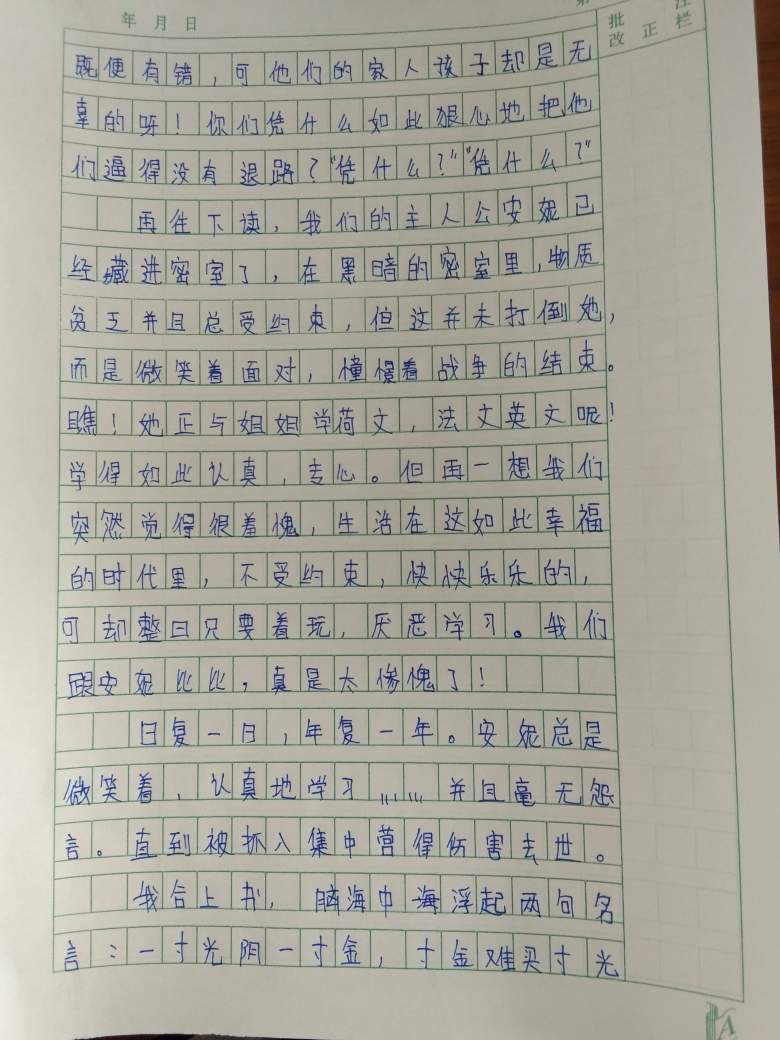 年 月 日
批改 正 栏
既便有错，可他们的家人孩子却是无
辜的呀！你们凭什么如此狠心地把他
们逼得没有退路？"凭什么？""凭什么？"
再往下读，我们的主人公安妮已
经藏进密室了，在黑暗的密室里，物质
贫乏并且总受约束，但这并未打倒她，
而是微笑着面对，憧憬着战争的结束。
瞧！她正与姐姐学荷文，法文英文呢！
学得如此认真，专心。但再一想我们
突然觉得很羞愧，生活在这如此幸福
的时代里，不受约束，快快乐乐的，
可却整日只要着玩，厌恶学习。我们
跟安妮比比，真是太惨愧了！
日复一日，年复一年。安妮总是
微笑着，认真地学习……并且毫无怨
言。直到被抓入集中营得伤害去世。
我合上书，脑海中海浮起两句名
言：一寸光阴一寸金，寸金难买寸光